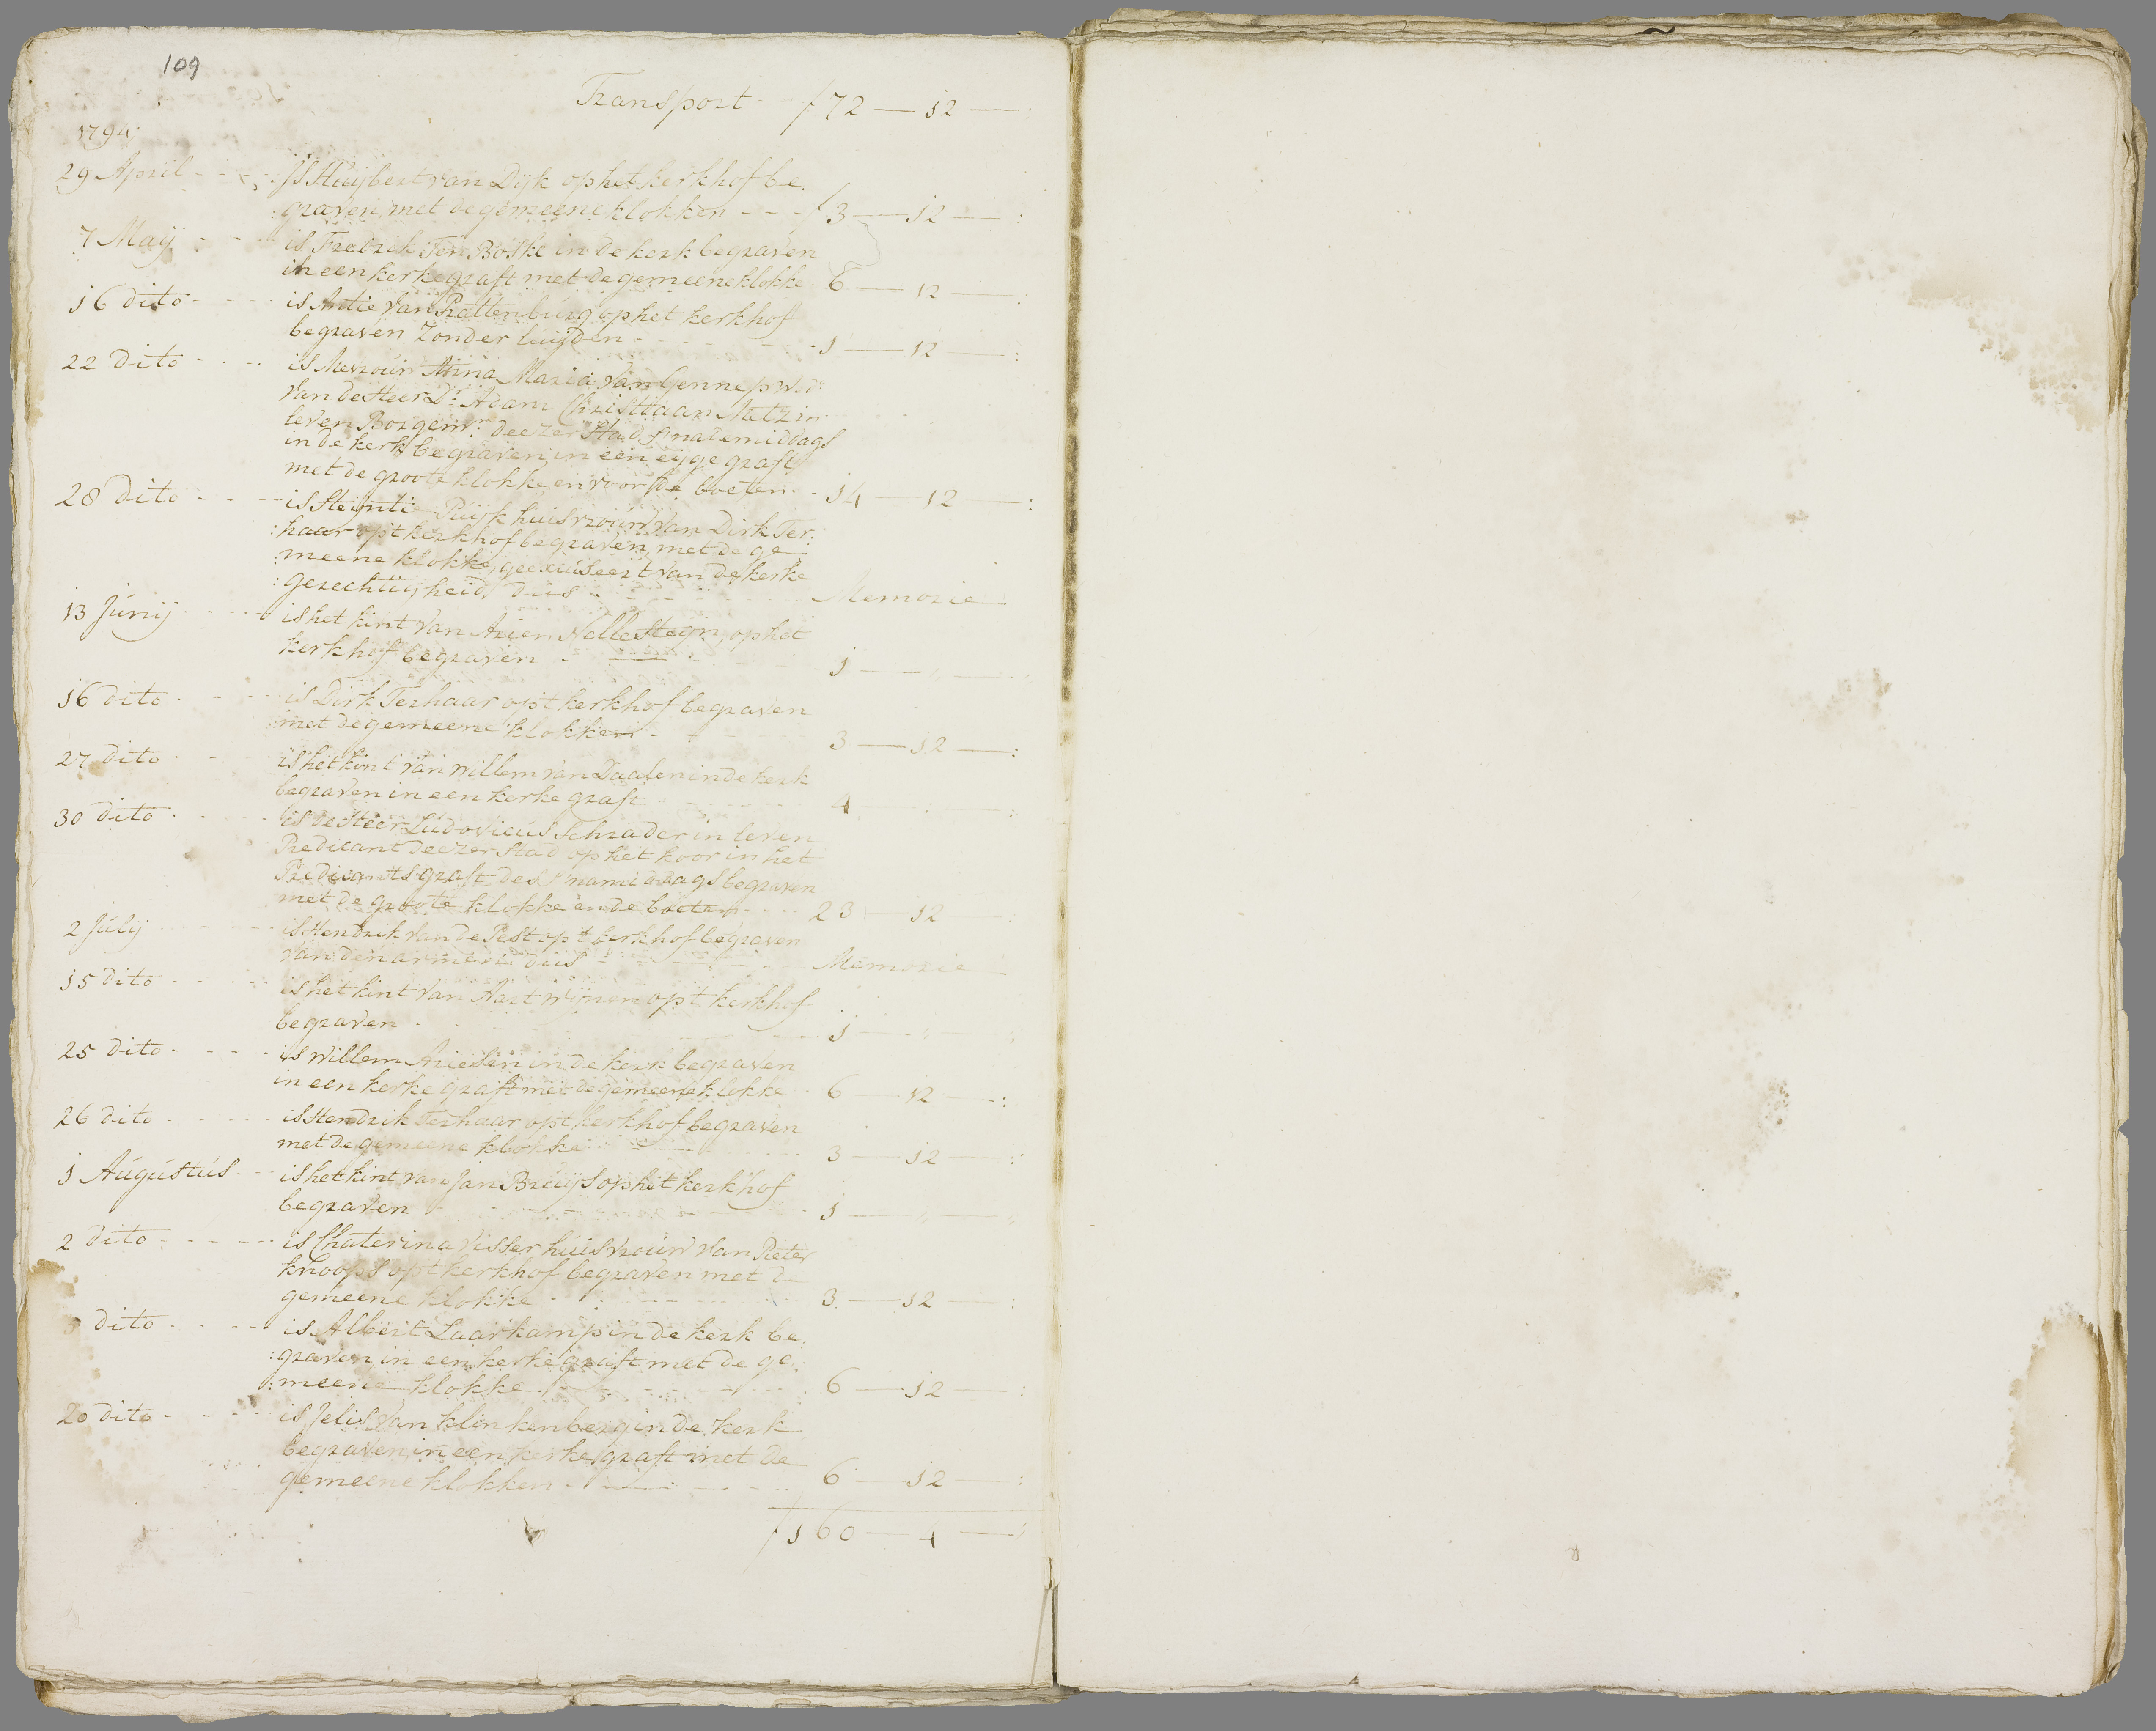 109
Transport f 72 — 12 —
1794
29 April - - - Is Huijbert van Dijk op het kerkhof be:
:graven, met de gemeene klokken - - - f 3 — 12 — :
7 Maij - - is Fredrik Ten Boske in de kerk begraven
in een kerke graft met de gemeene klokke 6 — 12 — :
16 dito - - - is Antie van Rattenburg op het kerkhof
begraven Zonder luijden - - - 1 — 12 — :
22 dito - - - is Mevrouw Anna Maria van Gennep Wed:
van de Heer Dr Adam Christiaan Metz in
leven Borgemr deezer Stad s'nademiddags
in de kerk begraven, in een eijge graft
met de groote klokke, en voor de boeten - 14 — 12 — :
28 dito - - - is Steijnti Puijk huisvrouw van Dirk Ter:
:haar op t kerkhof begraven, met de ge:
:meene klokke, geexcuseert van de kerke
:gerechtigheid, dus - - - Memorie
13 Junij - - - is het kint van Arien Nellesteijn, op het
kerkhof begraven - - - 1 — " —
16 dito - - - is Dirk Terhaar op t kerkhof begraven
met de gemeene klokken - - - 3 — 12 — :
27 dito - - - is het kint van Willem van Daalen in de kerk
begraven in een kerke graft 4 — : — :
30 dito - - - is de Heer Ludovicus Schrader in leven
Predicant deezer Stad op het koor in het
Predicants graft des s'namiddaags begraven
met de groote klokke en de boeten - - - 23 — 12
2 Julij - - - is Hendrik van de Pest op t kerkhof begraven
van den armen dus - - - Memorie
15 dito - - - is het kint van Aart Wijnen op t kerkhof
begraven - - - 1 — " — "
25 dito - - - is Willem Ariesen in de kerk begraven
in een kerke graft met de gemeene klokke 6 — 12 — :
26 dito - - - is Hendrik Terhaar op t kerkhof begraven
met de gemeene klokke - - - 3 — 12 — :
1 Augustus - - is het kint van Jan Bruijs op het kerkhof
begraven - - - 1 — " — "
2 dito - - - is Chaterina Visser huisvrouw van Pieter
Knoops op t kerkhof begraven met de
gemeene klokke - - - 3 — 12 — :
dito - - - is Albert Laarkamp in de kerk be:
:graven in een kerke graft met de ge:
:meene klokke - - - 6 — 12 — :
20 dito - - - is Jelis van Klinkenberg in de kerk
begraven, in een kerke graft met de
gemeene klokken - - - 6 — 12 — :
f 160 — 4 — "